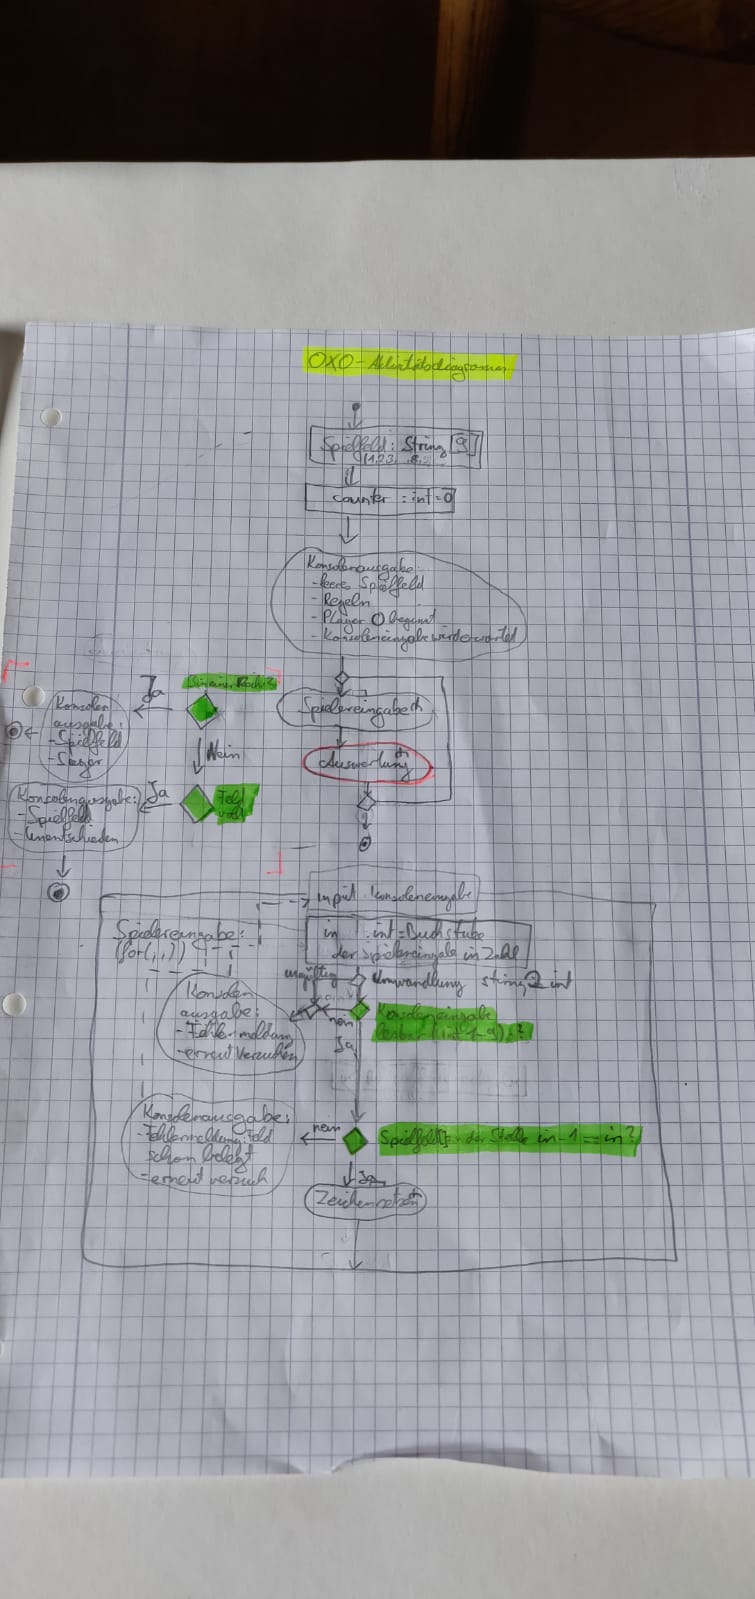 OXO-Aktivitätsdiagramm
Spielfeld: String[9]
counter : int=0
Konsolenausgabe:
-leeres Spielfeld
-Regeln
-Player O beginnt
-Konsoleneingabe wird erwartet
Spielereingabe
Auswertung
Drei in einer Reihe?
Ja
Konsolen
ausgabe:
-Spielfeld
-Sieger
Nein
Feld
voll?
Ja
Konsolenausgabe:
-Spielfeld
-Unentschieden
input Konsoleneingabe
Spielereingabe:
(for(,,))
in : int=Buchstabe
der Spielereingabe in Zahl
ungültig
Umwandlung string2int
Konsolen
ausgabe:
-Fehlermeldung
-erneut versuchen
nein
Konsoleneingabe
Ja
Konsolenausgabe:
-Fehlermeldung: Feld
schon belegt
-erneut versuch
nein
Spielfeld[] an der Stelle in-1 == in?
Ja
Zeichensetzen